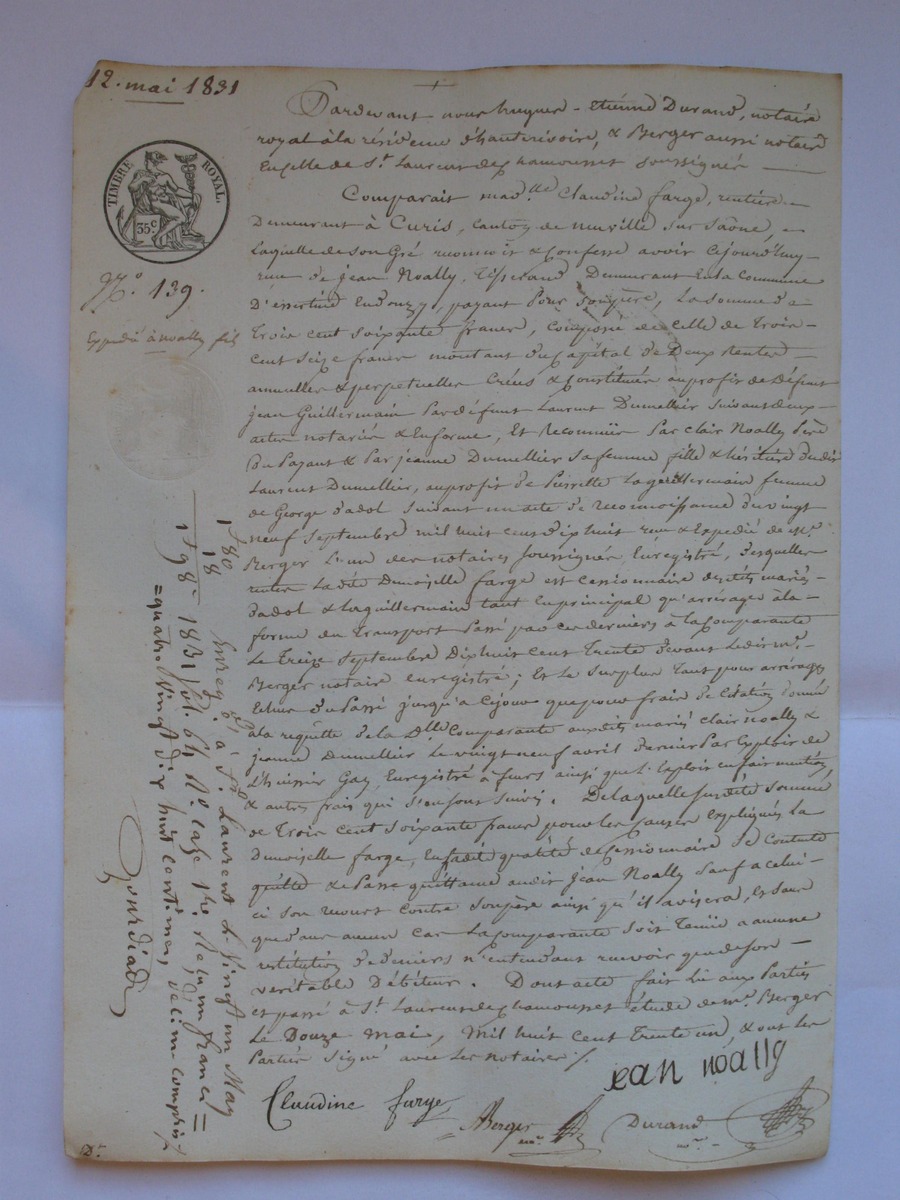 12. mai 1831
Pardevant nous hugues - etienne Durand, notaire
royal à la résidence d'hauterivoire, & Berger aussi notaire
En celle de St Laurent de chamousset soussignés
Comparait mad.lle Claudine farge, rentière
Demeurant à Curis, canton de neuville sur Saône,
Laquelle de son Gré reconnoit & Confesse avoir cejourd'huy
reçu de Jean Noally, Tisserand Demeurant En la commune
D'essertine En donzy, payant Pour son père, La somme de
Trois cent soixante francs, composée de celle de Trois
cent seize francs montant du Capital de Deux Rentes
annuelles & perpetuelles Créés & Constituées au profit de Défunt
jean Guillermain Par défunt Laurent Dumellier Suivant deux
actes notariés & En forme, Et Reconnüe Par clair Noally Père
Du Payant & Par jeanne Dumellier Sa femme fille & héritière dudit
Laurent Dumellier, au profit de Pierrette Laguillermain femme
de George dadol Suivant un acte de reconnoissance du vingt
neuf Septembre mil huit cent dix huit reçu & Expedié de Me
Berger L'un des notaires soussignés Enregistré, desquelles
rentes La dite Dmoiselle farge est cessionnaire desdits mariés
dadol & Laguillermain tant en principal qu'arrérages à la
forme du Transport Passé par ces derniers à la Comparante
Le Treize Septembre Dix huit cent Trente devant Ledit me
Berger notaire enregistré; Et Le Surplus Tant pour arrérages
Echus du Passé jusqu'à Cejour que pour frais de Citation donnée
à la requête de la Dlle Comparante auxdits mariés clair Noally &
jeanne Dumellier Le vingt neuf avril dernier Par Exploit de
L'huissier Gay Enregistré à feurs ainsi que L'exploit en fait mention
& autres frais qui s'en sont suivi. De laquelle susdite Somme
de Trois cent soixante francs pour les causes expliquées La
Dmoiselle farge, En sadite qualité de cessionnaire Se Contente
quitte & Passe quittance audit Jean Noally Sauf a celui
ci son recours contre son père ainsi qu'il avisera, Et sans
que dans aucun cas La comparante soit Tenüe a aucune
restitution de deniers n'entendant recevoir que de son
veritable Débiteur. Dont acte fait Lu aux Parties
et passé à St Laurent de chamousset étude de me Berger
Le Douze mai, Mil huit cent Trente un, & ont Les
Parties Signé avec Les notaires /.
jean noally
Claudine farge
Berger
Durand
TIMBRE ROYAL.
35c
No. 139.
Expedié à noally fils
1f 80
18
1f 98c
Enreg. à St Laurent Le Vingt un May
1831 vol. 64 No. case 1re Reçu un franc
quatre Vingt dix huit centimes, décime compris